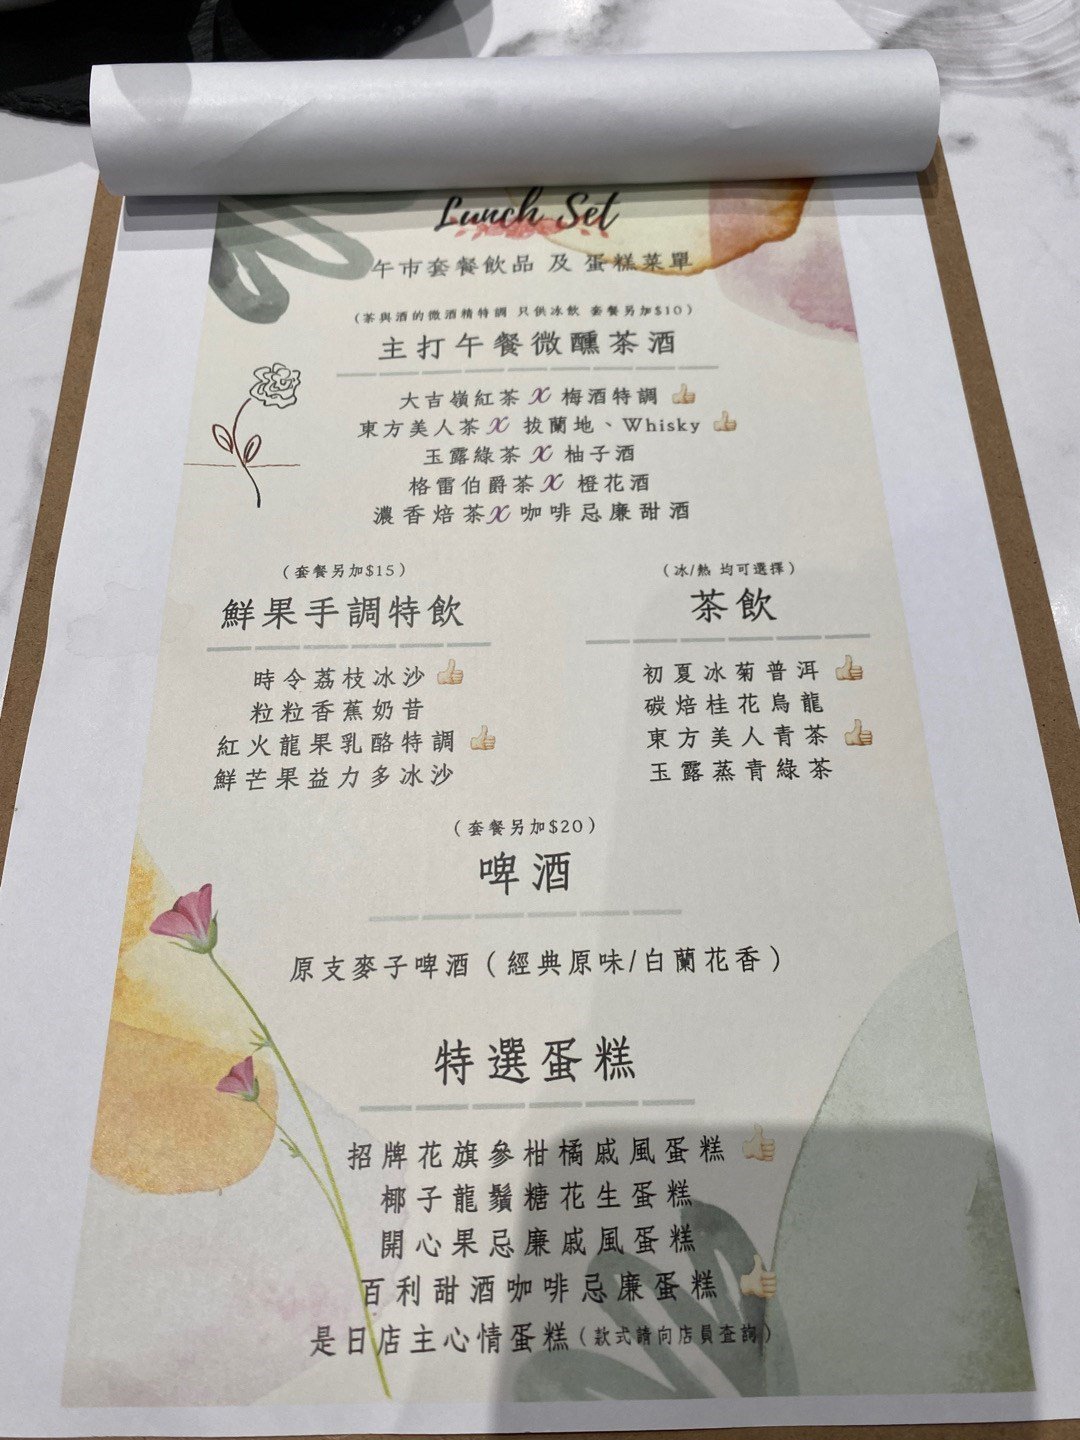 Lunch Set
午市套餐飲品 及 蛋糕菜單
(茶與酒的微酒精特調 只供冰飲 套餐另加$10)
主打午餐微醺茶酒
大吉嶺紅茶 X 梅酒特調
東方美人茶 X 拔蘭地、Whisky
玉露綠茶 X 柚子酒
格雷伯爵茶 X 橙花酒
濃香焙茶 X 咖啡忌廉甜酒
(套餐另加$15)
鮮果手調特飲
時令荔枝冰沙
粒粒香蕉奶昔
紅火龍果乳酪特調
鮮芒果益力多冰沙
(冰/熱 均可選擇)
茶飲
初夏冰菊普洱
碳焙桂花烏龍
東方美人青茶
玉露蒸青綠茶
(套餐另加$20)
啤酒
原支麥子啤酒(經典原味/白蘭花香)
特選蛋糕
招牌花旗參柑橘戚風蛋糕
椰子龍鬚糖花生蛋糕
開心果忌廉戚風蛋糕
百利甜酒咖啡忌廉蛋糕
是日店主心情蛋糕(款式請向店員查詢)